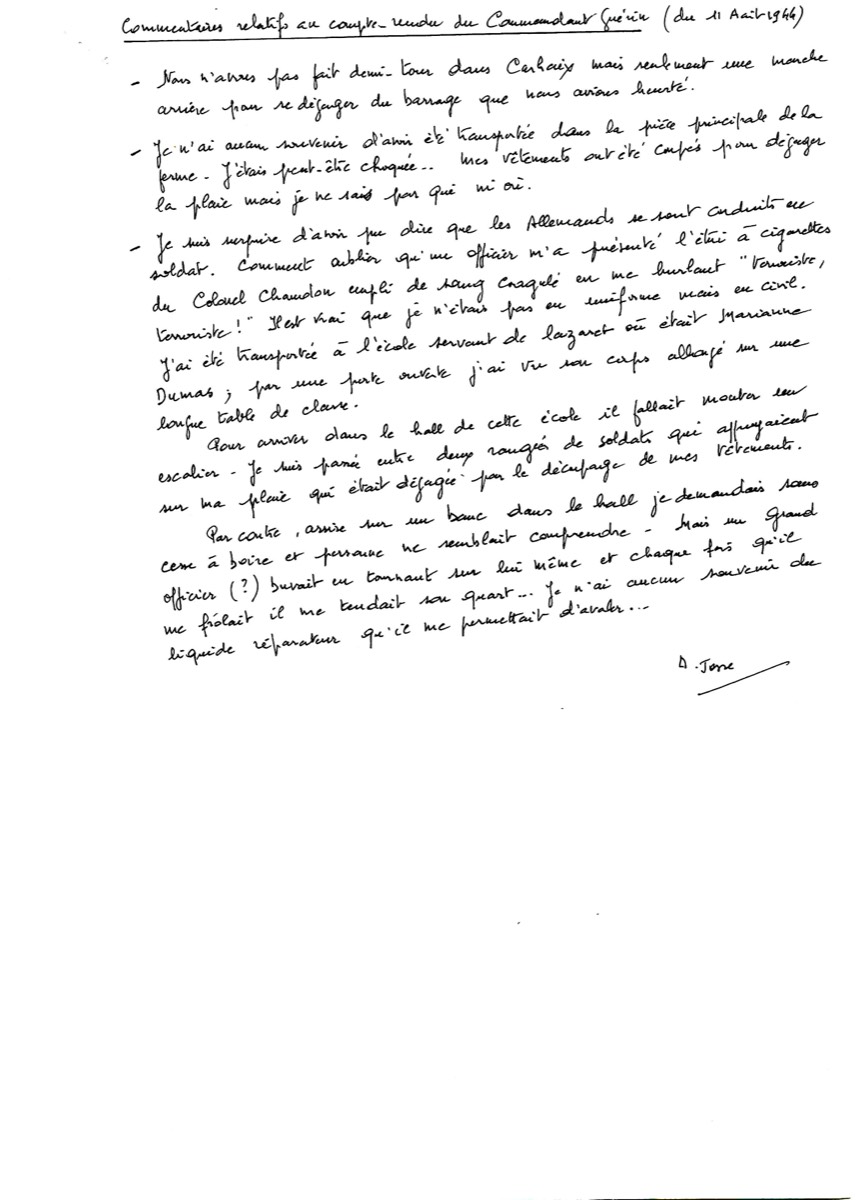 Commentaires relatifs au compte-rendu du Commandant Guérin (du 11 Août 1944)
- Nous n'avons pas fait demi-tour dans Carhaix mais seulement une marche
arrière pour se dégager du barrage que nous avions heurté.
- Je n'ai aucun souvenir d'avoir été transportée dans la pièce principale de la
ferme - J'étais peut-être choquée... Mes vêtements ont été coupés pour dégager
la plaie mais je ne sais par qui ni où.
- Je suis surprise d'avoir pu dire que les Allemands se sont conduits en
soldat. Comment oublier qu'un officier m'a présenté l'étui à cigarettes
du Colonel Chandon empli de sang coagulé en me hurlant "Terroriste,
terroriste!" Il est vrai que je n'étais pas en uniforme mais en civil.
J'ai été transportée à l'école servant de lazaret où était Marianne
Dumas ; par une porte ouverte j'ai vu son corps allongé sur une
longue table de classe.
Pour arriver dans le hall de cette école il fallait monter un
escalier - Je suis passée entre deux rangées de soldats qui appuyaient
sur ma plaie qui était dégagée par le découpage de mes vêtements.
Par contre, assise sur un banc dans le hall je demandais sans
cesse à boire et personne ne semblait comprendre - Mais un grand
officier (?) buvait en tournant sur lui même et chaque fois qu'il
me frôlait il me tendait son quart... Je n'ai aucun souvenir du
liquide réparateur qu'il me permettait d'avaler...